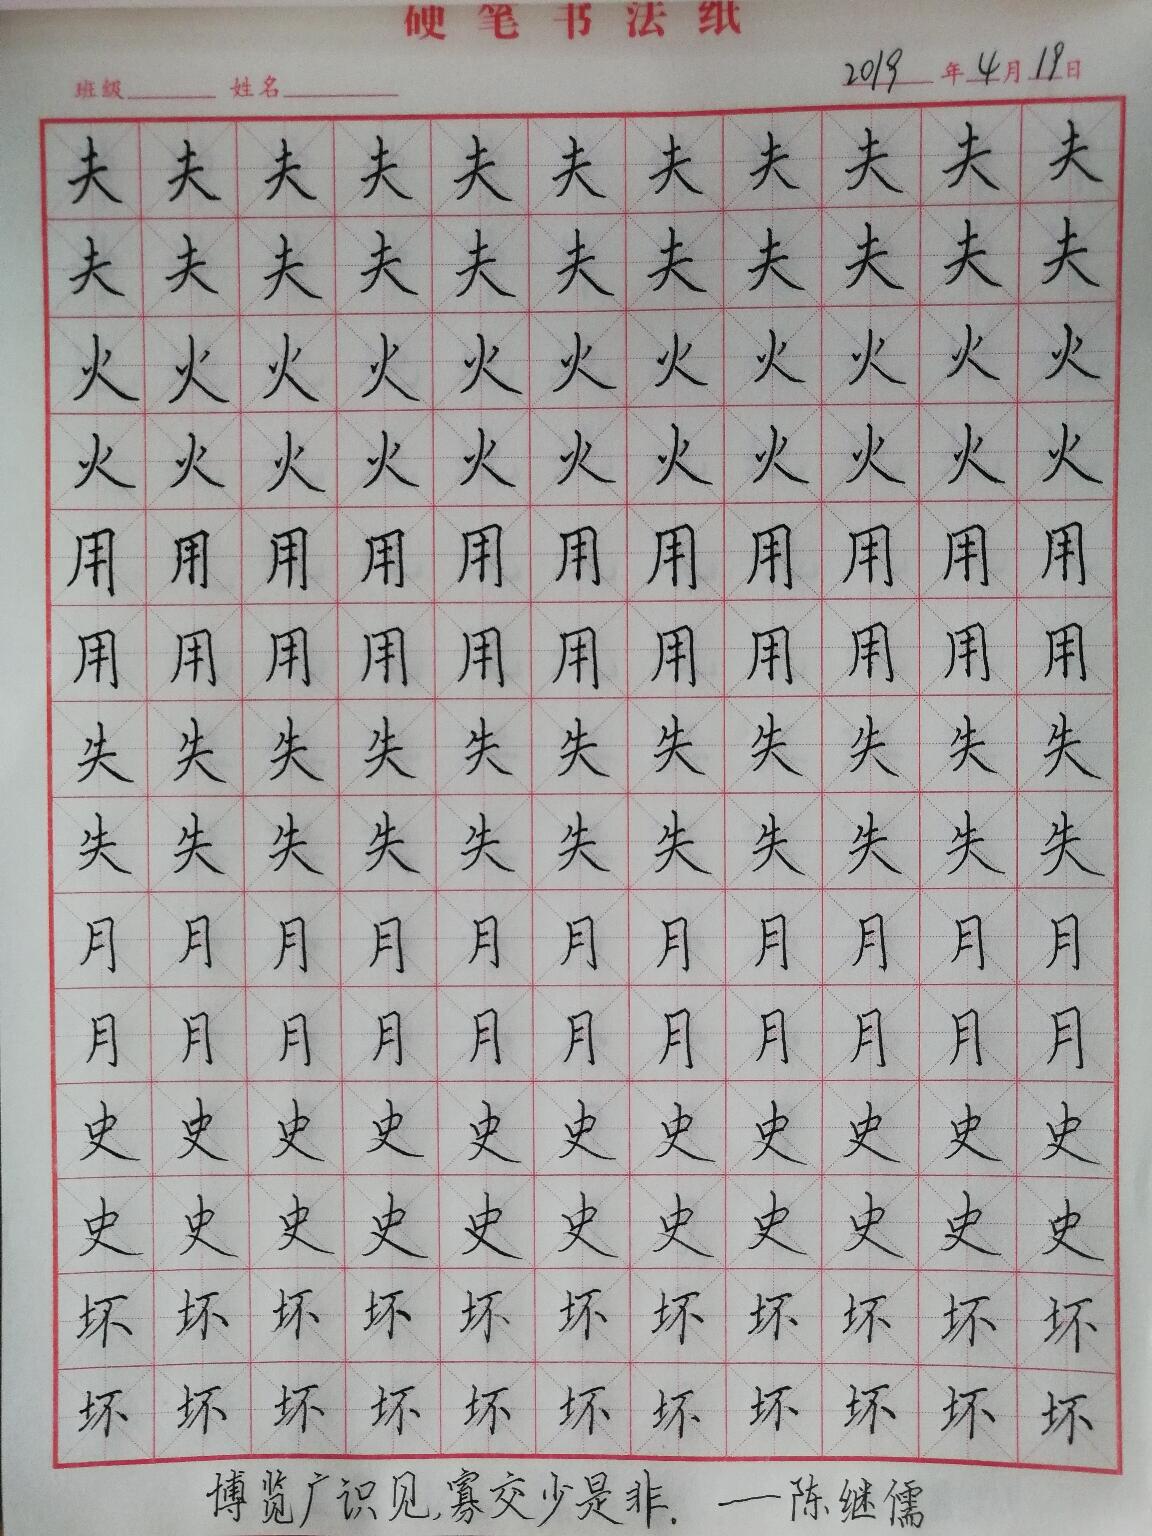 硬笔书法纸
班级 姓名 2019年4月19日
夫夫夫夫夫夫夫夫夫夫夫
夫夫夫夫夫夫夫夫夫夫夫
火火火火火火火火火火火
火火火火火火火火火火火
用用用用用用用用用用用
用用用用用用用用用用用
失失失失失失失失失失失
失失失失失失失失失失失
月月月月月月月月月月月
月月月月月月月月月月月
史史史史史史史史史史史
史史史史史史史史史史史
坏坏坏坏坏坏坏坏坏坏坏
坏坏坏坏坏坏坏坏坏坏坏
博览广识见,寡交少是非. ——陈继儒